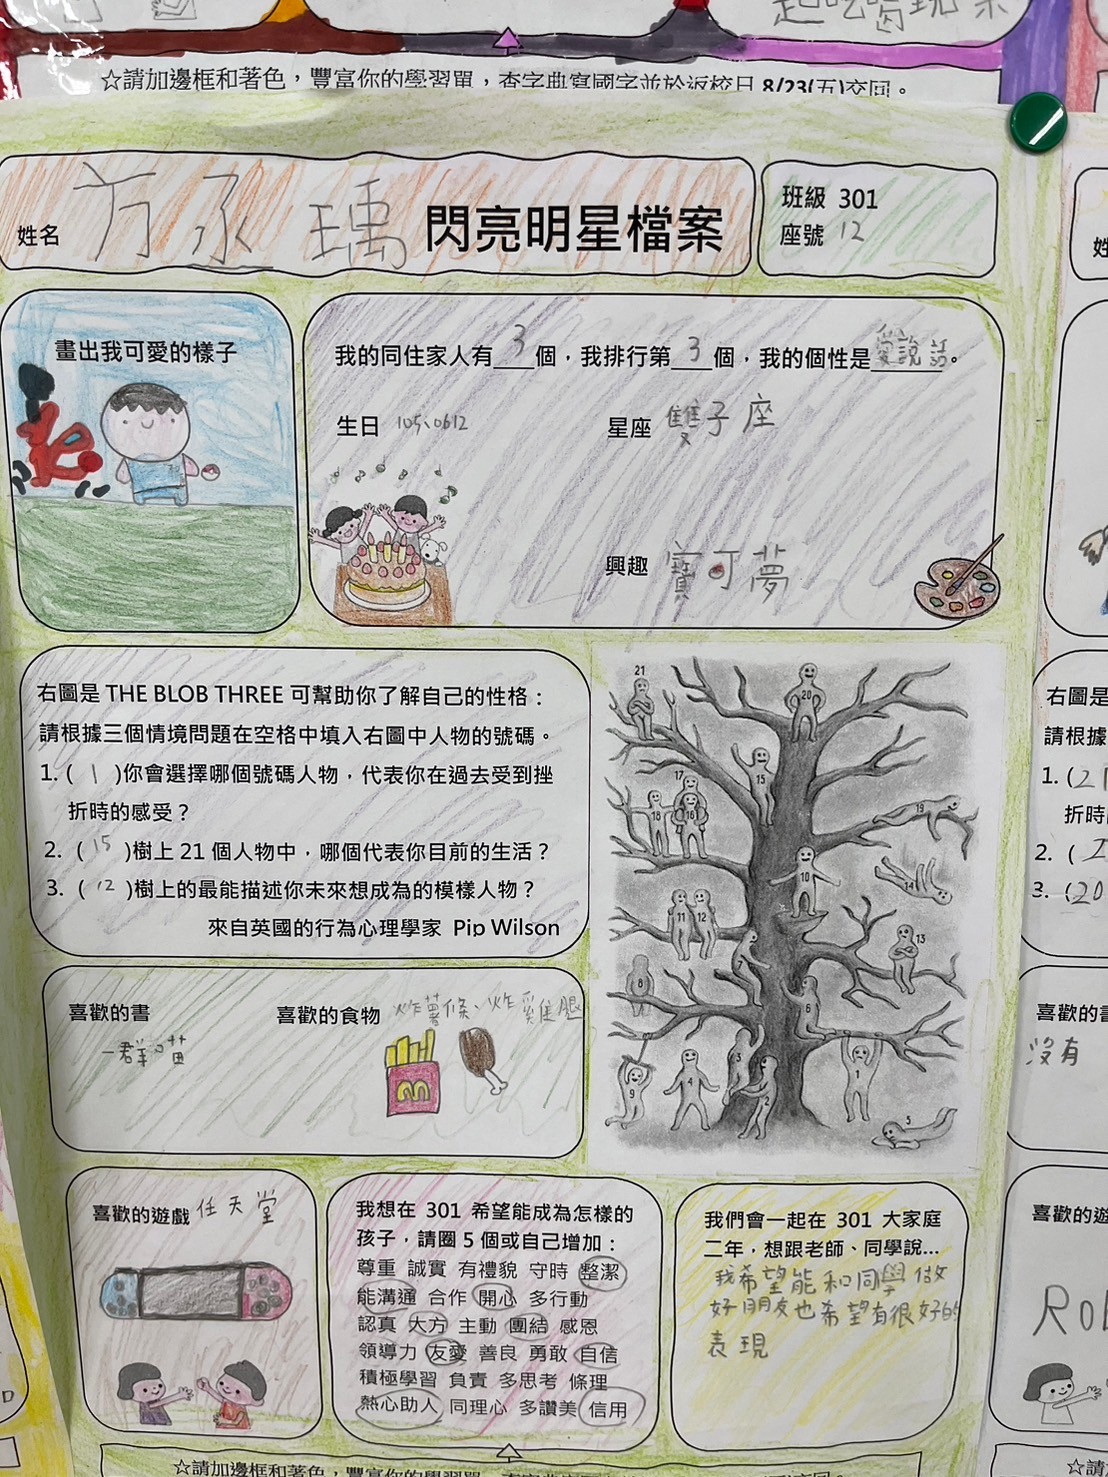 起吃喝玩樂
☆請加邊框和著色，豐富你的學習單，查字典寫國字並於返校日 8/23(五)交回。
姓名 方永瑀 閃亮明星檔案
班級 301
座號 12
畫出我可愛的樣子
我的同住家人有 3 個，我排行第 3 個，我的個性是愛說話。
生日 105.0612
星座 雙子座
興趣 寶可夢
右圖是 THE BLOB THREE 可幫助你了解自己的性格：
請根據三個情境問題在空格中填入右圖中人物的號碼。
1. ( 1 )你會選擇哪個號碼人物，代表你在過去受到挫
折時的感受？
2. ( 15 )樹上 21 個人物中，哪個代表你目前的生活？
3. ( 12 )樹上的最能描述你未來想成為的模樣人物？
來自英國的行為心理學家 Pip Wilson
21
20
15
17
18
16
19
10
14
11
12
13
7
8
6
3
4
1
9
2
5
喜歡的書
一群喵
喜歡的食物 炸薯條、炸雞腿
喜歡的遊戲 任天堂
我想在 301 希望能成為怎樣的
孩子，請圈 5 個或自己增加：
尊重 誠實 有禮貌 守時 整潔
能溝通 合作 開心 多行動
認真 大方 主動 團結 感恩
領導力 友愛 善良 勇敢 自信
積極學習 負責 多思考 條理
熱心助人 同理心 多讚美 信用
我們會一起在 301 大家庭
二年，想跟老師、同學說...
我希望能和同學做
好朋友也希望有很好的
表現
姓
右圖是
請根據
1. (21
折時
2. (
3. (20
喜歡的書
沒有
喜歡的遊
☆請加邊框和著色，豐富你的學習單，查字典寫國字並於返校日 8/23(五)交回。
☆請